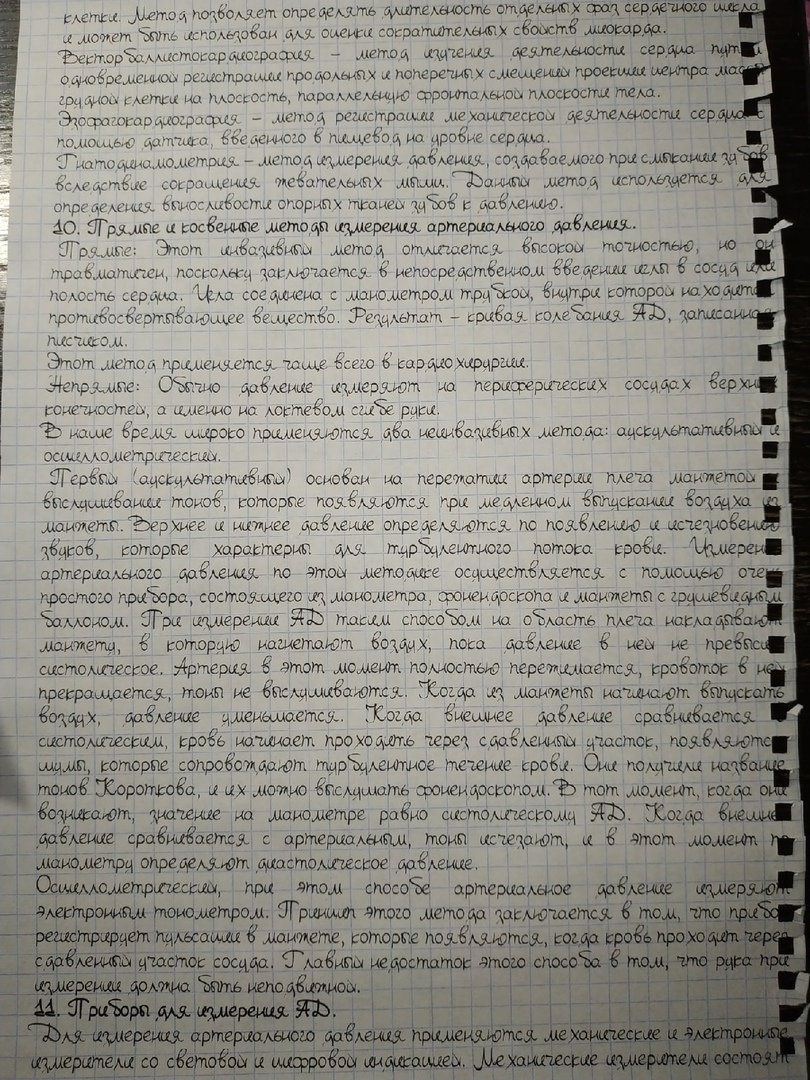 клетки. Метод позволяет определять длительность отдельных фаз сердечного цикла
и может быть использован для оценки сократительных свойств миокарда.
Векторбаллистокардиография – метод изучения деятельности сердца путём
одновременной регистрации продольных и поперечных смещений проекции центра массы
грудной клетки на плоскость, параллельную фронтальной плоскости тела.
Эзофагокардиография – метод регистрации механической деятельности сердца с
помощью датчика, введенного в пищевод на уровне сердца.
Гнатодинамометрия – метод измерения давления, создаваемого при смыкании зубов
вследствие сокращения жевательных мышц. Данный метод используется для
определения выносливости опорных тканей зубов к давлению.
10. Прямые и косвенные методы измерения артериального давления.
Прямые: Этот инвазивный метод отличается высокой точностью, но он
травматичен, поскольку заключается в непосредственном введении иглы в сосуд или
полость сердца. Игла соединена с манометром трубкой, внутри которой находится
противосвертывающее вещество. Результат – кривая колебания АД, записанная
писчиком.
Этот метод применяется чаще всего в кардиохирургии.
Непрямые: Обычно давление измеряют на периферических сосудах верхних
конечностей, а именно на локтевом сгибе руки.
В наше время широко применяются два неинвазивных метода: аускультативный и
осциллометрический.
Первый (аускультативный) основан на пережатии артерии плеча манжетой
выслушивании тонов, которые появляются при медленном выпускании воздуха из
манжеты. Верхнее и нижнее давление определяются по появлению и исчезновению
звуков, которые характерны для турбулентного потока крови. Измерение
артериального давления по этой методике осуществляется с помощью очень
простого прибора, состоящего из манометра, фонендоскопа и манжеты с грушевидным
баллоном. При измерении АД таким способом на область плеча накладывают
манжету, в которую нагнетают воздух, пока давление в ней не превысит
систолическое. Артерия в этот момент полностью пережимается, кровоток в ней
прекращается, тоны не выслушиваются. Когда из манжеты начинают выпускать
воздух, давление уменьшается. Когда внешнее давление сравнивается
систолическим, кровь начинает проходить через сдавленный участок, появляются
шумы, которые сопровождают турбулентное течение крови. Они получили название
тонов Короткова, и их можно выслушать фонендоскопом. В тот момент, когда они
возникают, значение на манометре равно систолическому АД. Когда внешнее
давление сравнивается с артериальным, тоны исчезают, и в этот момент по
манометру определяют диастолическое давление.
Осциллометрический, при этом способе артериальное давление измеряют
электронным тонометром. Принцип этого метода заключается в том, что прибор
регистрирует пульсации в манжете, которые появляются, когда кровь проходит через
сдавленный участок сосуда. Главный недостаток этого способа в том, что рука при
измерении должна быть неподвижной.
11. Приборы для измерения АД.
Для измерения артериального давления применяются механические и электронные
измерители со световой и цифровой индикацией. Механические измерители состоят